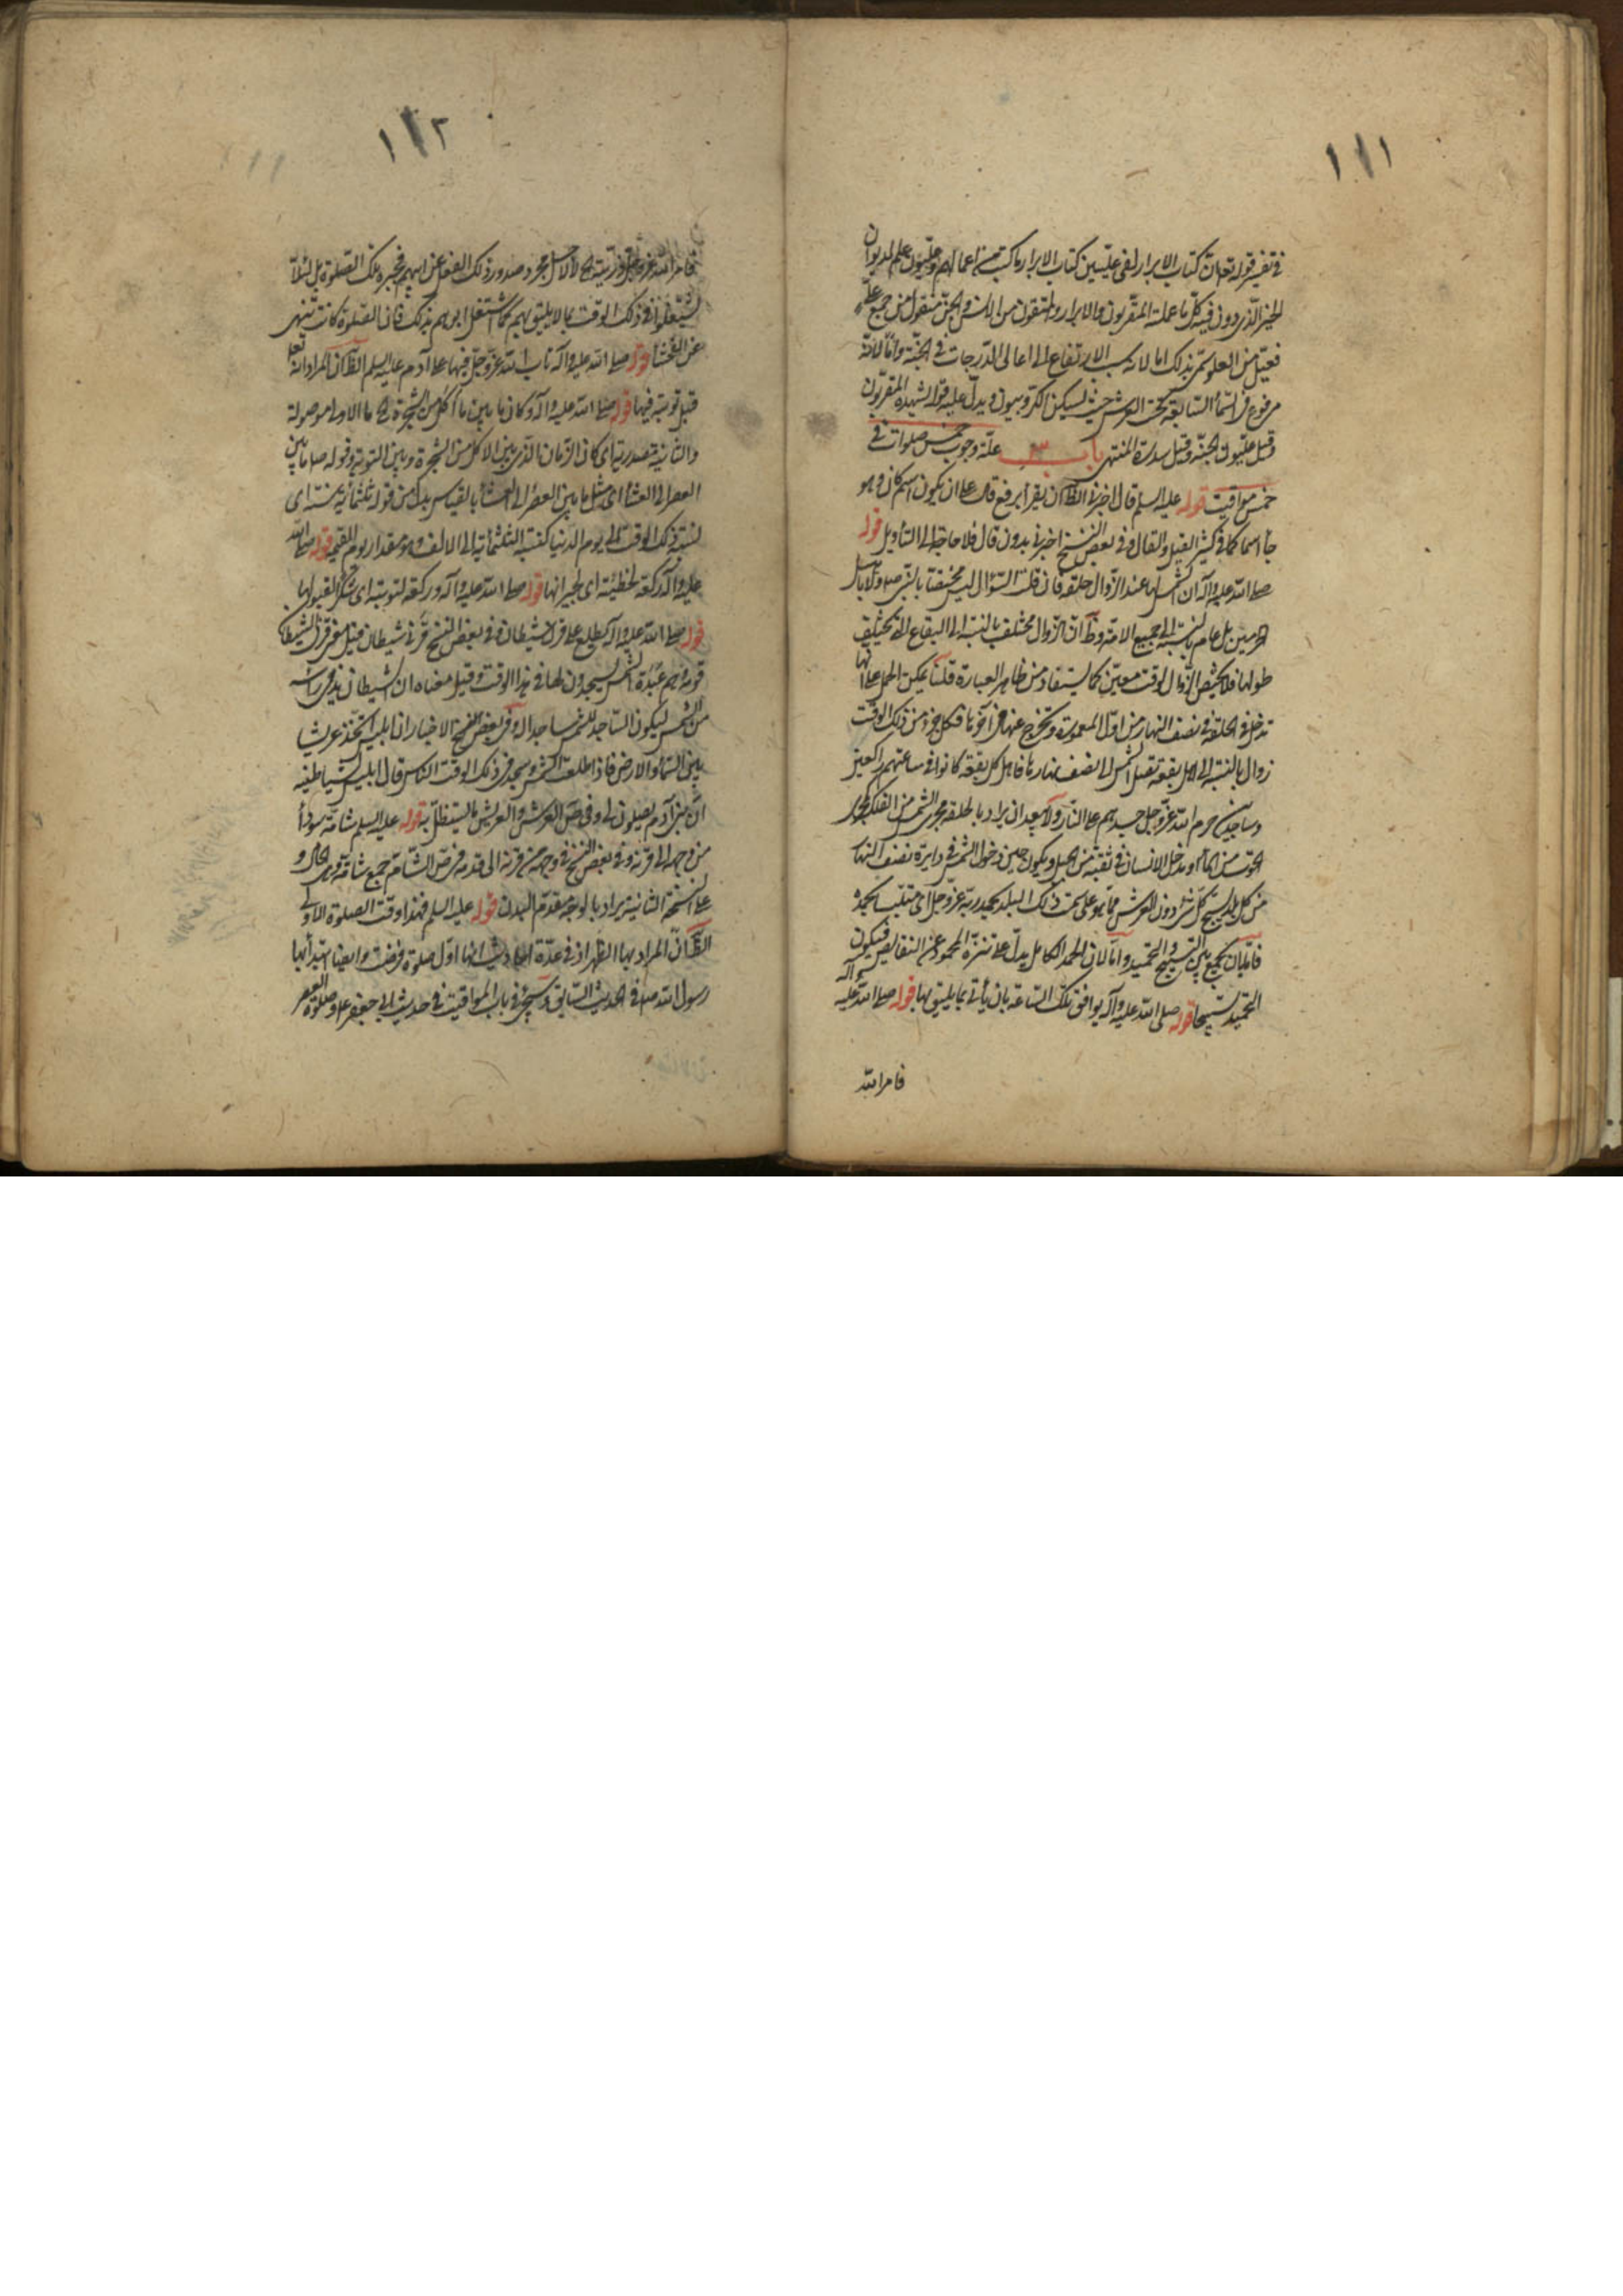 ١١١
في تفسير قوله تعالى ان كتاب الابرار لفي عليين كتاب الابرار ما كتب من اعمالهم وعليون علم لديوان
الخير الذي دون فيه كل ما عملته المقربون والابرار والمتقون من الانس والجن منقول من جمع على
فعيل من العلو سمى بذلك اما لانه سبب الارتفاع الى اعالى الدرجات في الجنة واما لانه
مرفوع في السماء السابعة تحت العرش حيث يسكن الكروبيون ويدل عليه قوله يشهده المقربون
وقيل عليون الجنة وقيل سدرة المنتهى باب علة وجوب خمس صلوات في
خمس مواقيت قوله عليه السلم قال اخبرني الظاهر ان يقرأ برفع قال على ان يكون اسم كان وهو
جاء اسما كما في كثير القيل والقال وفي بعض النسخ اخبرني بدون قال فلا حاجة الى التأويل قوله
صلى الله عليه وآله ان الشمس لها عند الزوال حلقة فان قلت السؤال ليس مختصا بالنبي ص ولا باهل
الحرمين بل عام بالنسبة الى جميع الامة وظ ان الزوال مختلف بالنسبة الى البقاع التي يختلف
طولها فلا يختص الزوال لوقت معين كما يستفاد من ظاهر العبارة قلنا يمكن الحمل على انها
تدخل في الحلقة في نصف النهار من اول المعمورة وتخرج عنها في آخرها فكل جزء من ذلك الوقت
زوال بالنسبة الى اهل بقعة تصل الشمس الى نصف نهارها فاهل كل بقعة كانوا في ساعتهم راكعين
وساجدين حرم الله عز وجل جسدهم على النار ولا يبعد ان يراد بالحلقة مجرى الشمس من الفلك
من الماء او يدخل الانسان في ثقبة من الجبل ويكون حين دخول الشمس في دايرة نصف النهار
من كل بلد يسبح كل شئ دون العرش مما هو على سمت ذلك البلد بحمد ربه عز وجل اى متلبسا بحمده
فاما ان يجمع بين التسبيح والتحميد واما لان الحمد الكامل يدل على تنزه المحمود عن النقايص فيكون
التحميد تسبيحا قوله صلى الله عليه وآله يوافق تلك الساعة بان يأتي بما يليق بها قوله صلى الله عليه وآله
فامر الله
١١٢
فامر الله عز وجل ذريته لا لاجل مجرد صدور ذلك الفعل عن ابيهم فيجبره تلك الصلوة بل لئلا
يشتغلوا في ذلك الوقت بما لا يليق بهم كما اشتغل ابوهم بذلك فان الصلوة كانت تنهى
عن الفحشاء قوله صلى الله عليه وآله تاب الله عز وجل فيها على آدم عليه السلم الظاهر ان المراد انه تعالى
قبل توبته فيها قوله صلى الله عليه وآله وكان ما بين ما اكل من الشجرة ما الاولى موصولة
والثانية مصدرية اى كان الزمان الذي بين الاكل من الشجرة وبين التوبة وقوله ص ما بين
العصر الى العشاء اى مثل ما بين العصر الى العشاء بالقياس بدل من قوله ثلثمائة سنة اى
نسبة ذلك الوقت الى يوم الدنيا كنسبة الثلثمائة الى الالف وهو مقدار يوم القيمة قوله صلى الله
عليه وآله ركعة لخطيئته اى لجبرانها قوله صلى الله عليه وآله وركعة لتوبته اى شكر القبولها
قوله صلى الله عليه وآله تطلع على قرن شيطان وفي بعض النسخ قرني شيطان قيل هو قرن الشيطان
قومه وهم عبدة الشمس يسجدون لها في هذا الوقت وقيل معناه ان الشيطان يدني رأسه
من الشمس ليكون الساجد للشمس ساجدا له وفي بعض الاخبار ان ابليس اتخذ عريشا
بين السماء والارض فاذا طلعت الشمس وسجد في ذلك الوقت الناس قال ابليس لشياطينه
ان بني آدم يصلون لي وفي ص العرش والعريش ما يستظل به قوله عليه السلم شامة سوداء
من وجهه الى قرنه وفي بعض النسخ في وجهه من قرنه الى قدمه في ص الشام جمع شامة وهي الخال و
على النسخة الثانية يراد بالوجه مقدم البدن قوله عليه السلم فهذا وقت الصلوة الاولى
الظاهر ان المراد بها الظهر اذ في عدة احاديث انها اول صلوة فرضت وايضا ابتدأ بها
رسول الله ص في الحديث السابق وسيجئ في باب المواقيت في حديث ابي جعفر ع وصلوة العصر